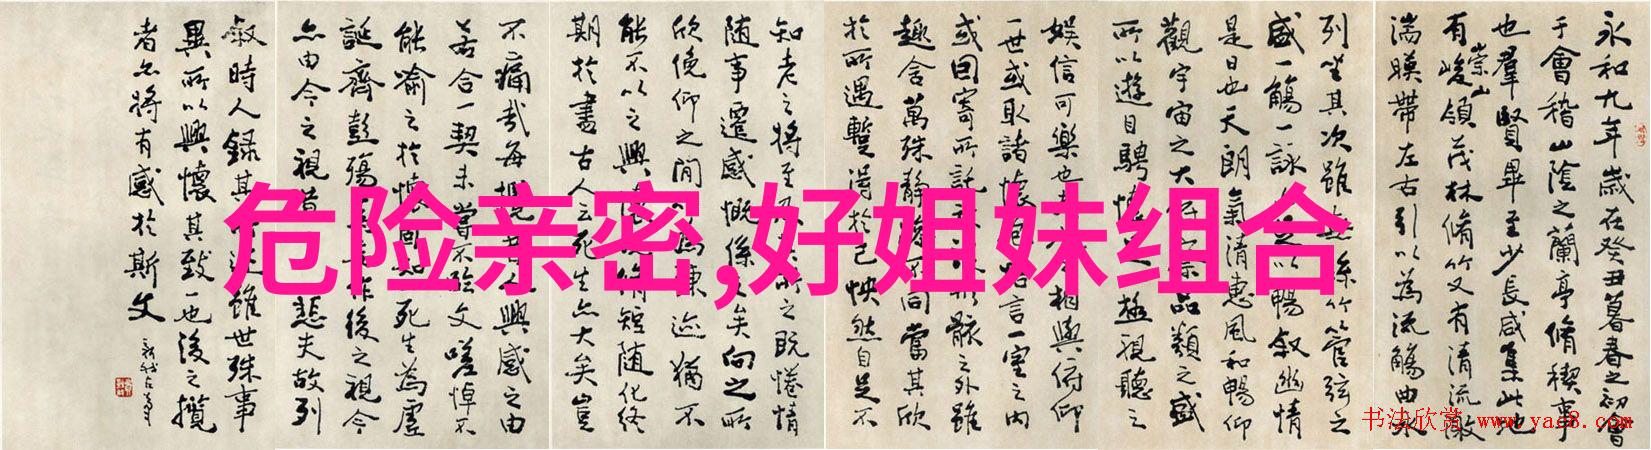 危险亲密,好姐妹组合
永和九年歲在癸丑暮春之初會
于會稽山陰之蘭亭脩稧事
也羣賢畢至少長咸集此地
有崇山峻領茂林脩竹又有清流激
湍暎帶左右引以為流觴曲水
列坐其次雖無絲竹管弦之
盛一觴一詠足以暢敘幽情
是日也天朗氣清惠風和暢仰
觀宇宙之大品類之盛
所以遊目騁懷足以極視聽之
娛信可樂也夫相與俯仰
一世或取諸懷抱悟言一室之內
或因寄所託形骸之外雖
趣舍萬殊靜躁不同當其欣
於所遇暫得於己怏然自足不
知老之將至及其所之既惓情
隨事遷感慨係之矣向之所
欣俛仰之間以為陳迹猶不
能不以之興懷況脩短隨化終
期於盡古人云死生亦大矣豈
不痛哉每攬昔人興感之由
若合一契未嘗不臨文嗟悼不
能喻之於懷固知死生為虛
誕齊彭殤為妄作後之視今
亦由今之視昔悲夫故列
敘時人錄其所述雖世殊事
異所以興懷其致一也後之攬
者亦將有感於斯文
书法欣赏 www.yac8.com